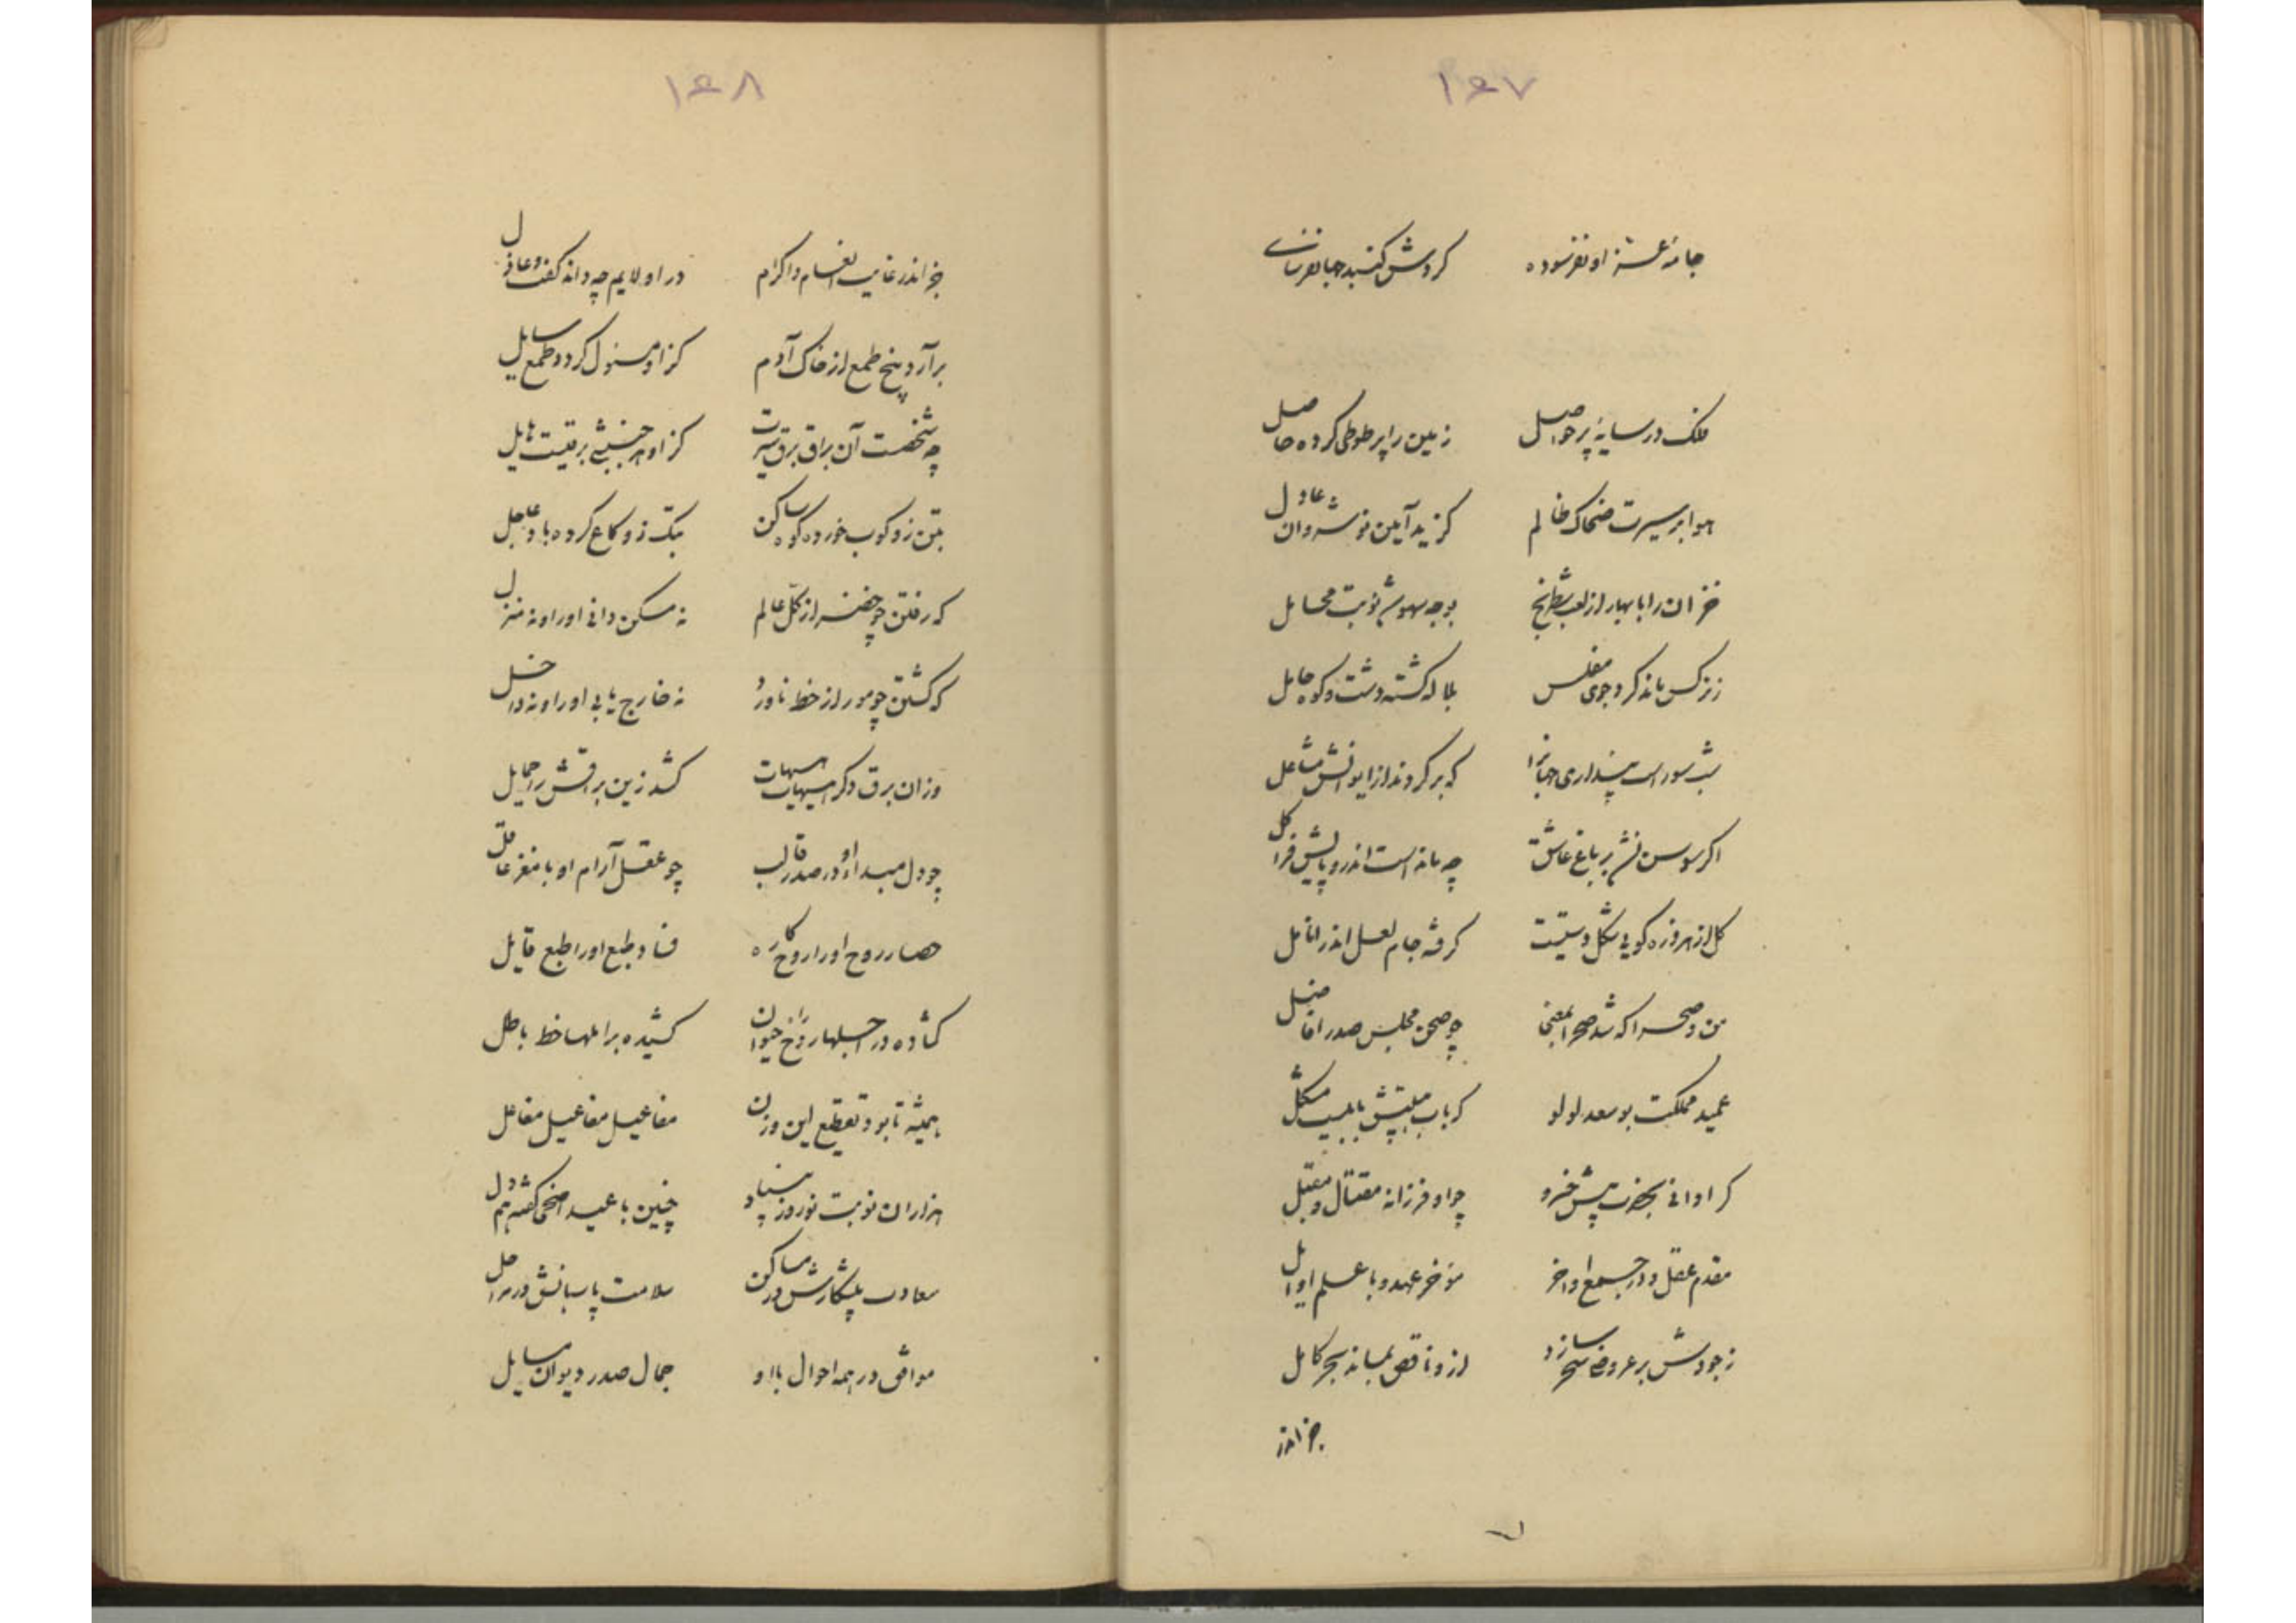 ۱۴۷
جامهٔ عشق او نفرسوده گردش گنبد جهانفرسای
فلک در سایهٔ پر حواصل زمین را پر طوطی کرده حاصل
هوا بر سیرت ضحاک ظالم گزید آیین نوشروان عادل
خزان را با بهار از لعب شطرنج بوجه سهو شد نوبت محایل
زنرکس ماند کرد جوی مفلس بلاله گشته دشت و کوه حامل
شب سوراست پنداری جهانرا که برکردند از ایوانش مشاعل
اگر سوسن نشد بر باغ عاشق چه مانده است اندرو پایش فرا گل
گل از پیروزه گویی شکل دستیست گرفته جام لعل اندر انامل
من و صحرا که شد صحرا بمعنی چو صحن مجلس صدر افاضل
عمید مملکت بوسعد لولو که باب هیبتش بابیست مشکل
گر ادانی بحضرت پیش خسرو چو او فرزانه مقتال و مقبل
مقدم عقل و در جمع اواخر مؤخر عهد و با علم اوایل
زجودش بر عروض بحر سازد ازو ناقص بماند بحر کامل
جز اندر
۱۴۸
جز اندر غایت انعام و اکرام در او لایم چه داند گفت و عاذل
برآرد بیخ طمع از خاک آدم کزاو مسئول گردد طمع سایل
چه شخصست آن براق برق سیرت کزاو هر جنبشی برقیست هایل
بتن زو کوب خورده کوه ساکن بتک زو کاغ کرده باد عاجل
که رفتن چو خضر از کل عالم نه مسکن دانی او را و نه منزل
که گشتن چو مور از خط ناورد نه خارج یابی او را و نه داخل
وزان برق دگر هیهات هیهات کشد زین برقش را حمایل
چو دل مبداء او در صدر قالب چو عقل آرام او با مغز عاقل
حصار روح او را روح کاره فساد طبع او را طبع قایل
گشاده در اجلها راز حیوان کشیده بر املها خط باطل
همیشه تا بود تقطیع این وزن مفاعیل مفاعیل مفاعل
هزاران نوبت نوروز بیناد چنین با عید اضحی گشته همدل
سعادت پیشکارش در مساکن سلامت پاسبانش در مراحل
موافق در همه احوال با او جمال صدر دیوان مسایل